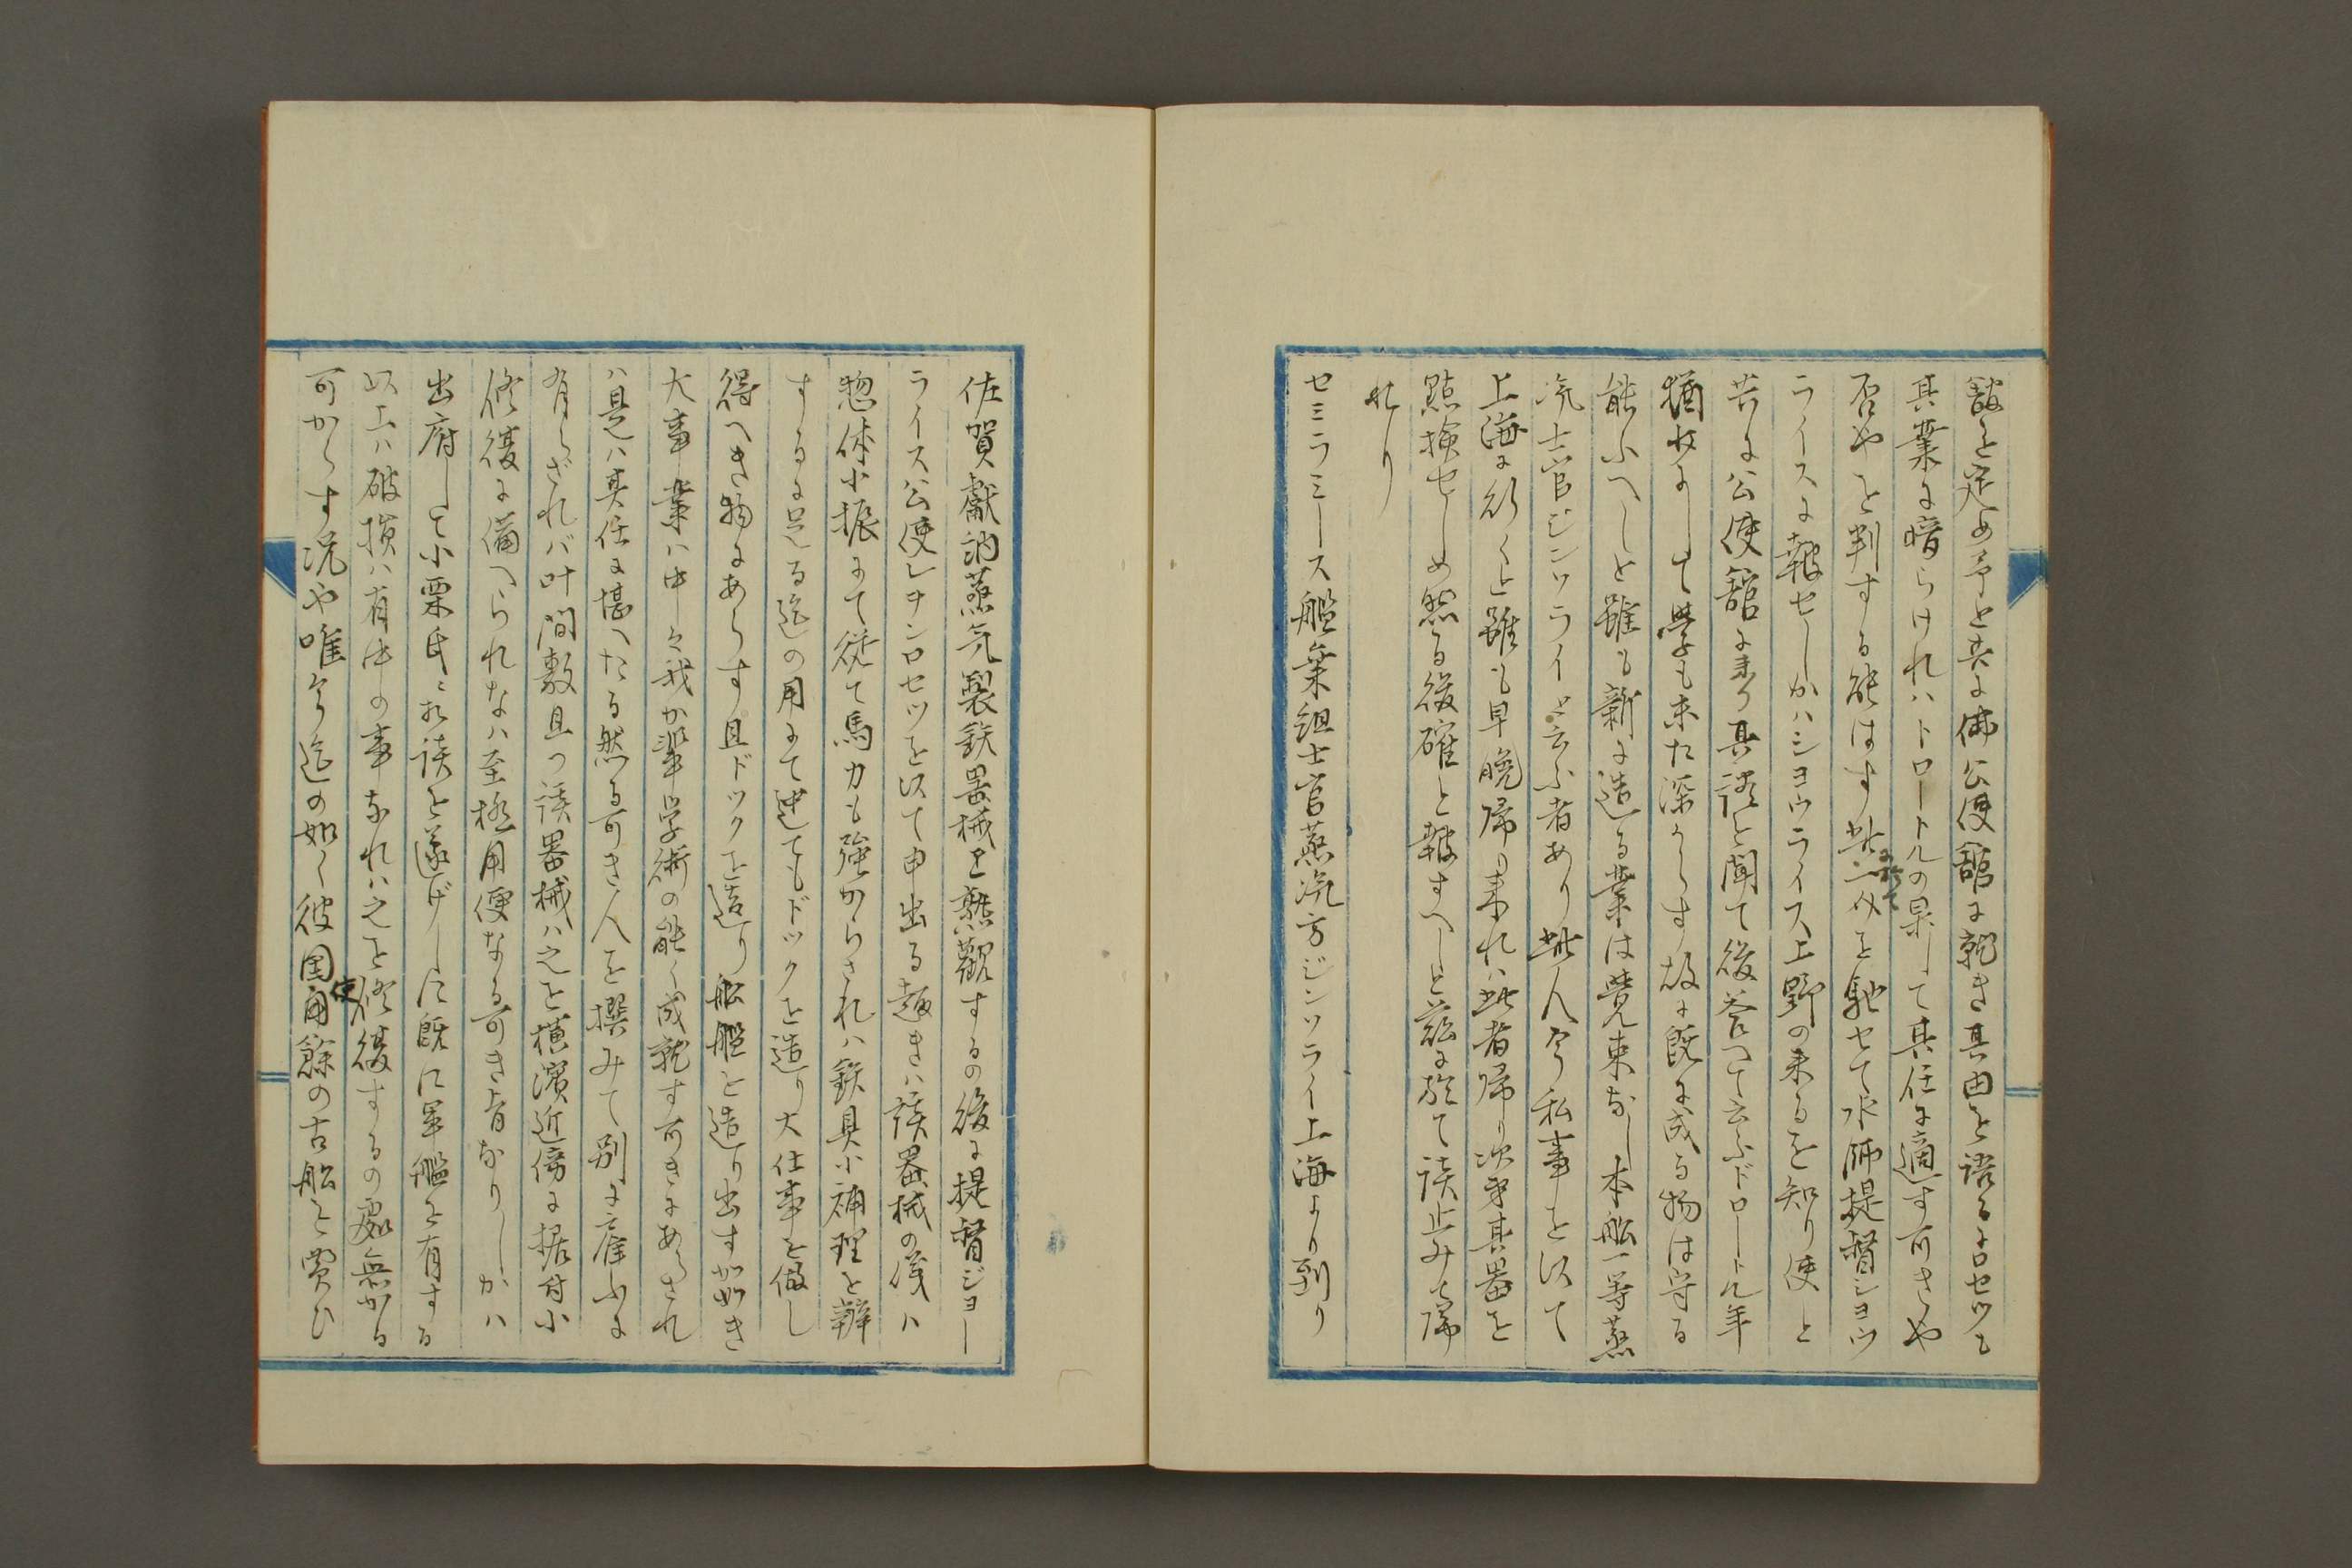 議を定め予と共に佛公使舘に趣き其由を語るにロセツも
其業に暗らけれハトロートルの果して其任に適す可きや
否やを判する能はす此に於て一介を馳せて水師提督ジヨウ
ライスに報せしかハジヨウライス上野の来るを知り使と
共に公使舘に来り其語を聞て後答へて云ふドロートル年
猶少にして学も未た深からす故に既に成る物は守る
能ふへしと雖も新に造る業は覚束なし本船一等蒸
汽士官ジンソライと云ふ者あり此人今私事を以て
上海に行くと雖も早晩帰り来れハ此者帰り次第其器を
點検せしめ然る後確と報すへしと茲に於て談止みて帰
れり
セミラミース艦乗組士官蒸汽方ジンソライ上海より到り
佐賀獻納蒸気製鉄器械を熟觀するの後に提督ジョー
ライス公使レヲンロセツを以て申出る趣きハ該器械の儀ハ
惣体小振にて従て馬力も強からされハ鉄具小補理を辨
するに足る迄の用にて迚てもドックを造り大仕事を做し
得へき物にあらす且ドックを造り船艦を造り出す如き
大事業ハ中々我か輩学術の能く成就す可きにあらされ
ハ是ハ其任に堪へたる然る可き人を撰みて別に雇ふに
有らざれバ叶間敷且つ該器械ハ之を横濱近傍に据付小
修復に備へられなハ至極用便なる可き旨なりしかハ
出府して小栗氏に相談を遂げしに既に軍艦を有する
以上ハ破損ハ有中の事なれハ之を修復するの處無かる
可からす况や唯今迄の如く彼国用餘の古船を買ひ